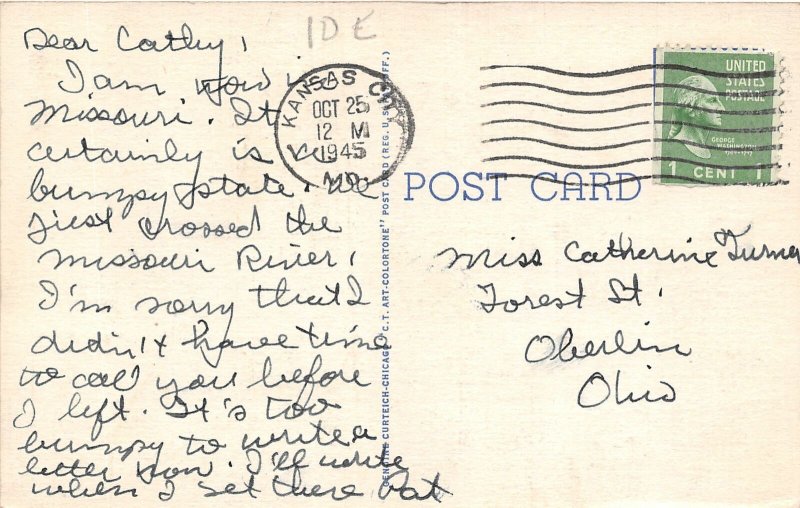 IDE
Dear Cathy,
I am now in
Missouri. It
certainly is a
bumpy state. We
just crossed the
Missouri River,
I'm sorry that I
didn't have time
to call you before
I left. It's too
bumpy to write a
letter now. I'll write
when I get there Pat
KANSAS CITY
OCT 25
12 M
1945
MO.
GENUINE CURTEICH-CHICAGO "C.T. ART-COLORTONE" POST CARD (REG. U.S. OFF.)
UNITED
STATES
POSTAGE
GEORGE
WASHINGTON
1 CENT 1
POST CARD
Miss Catherine Turner
Forest St.
Oberlin
Ohio